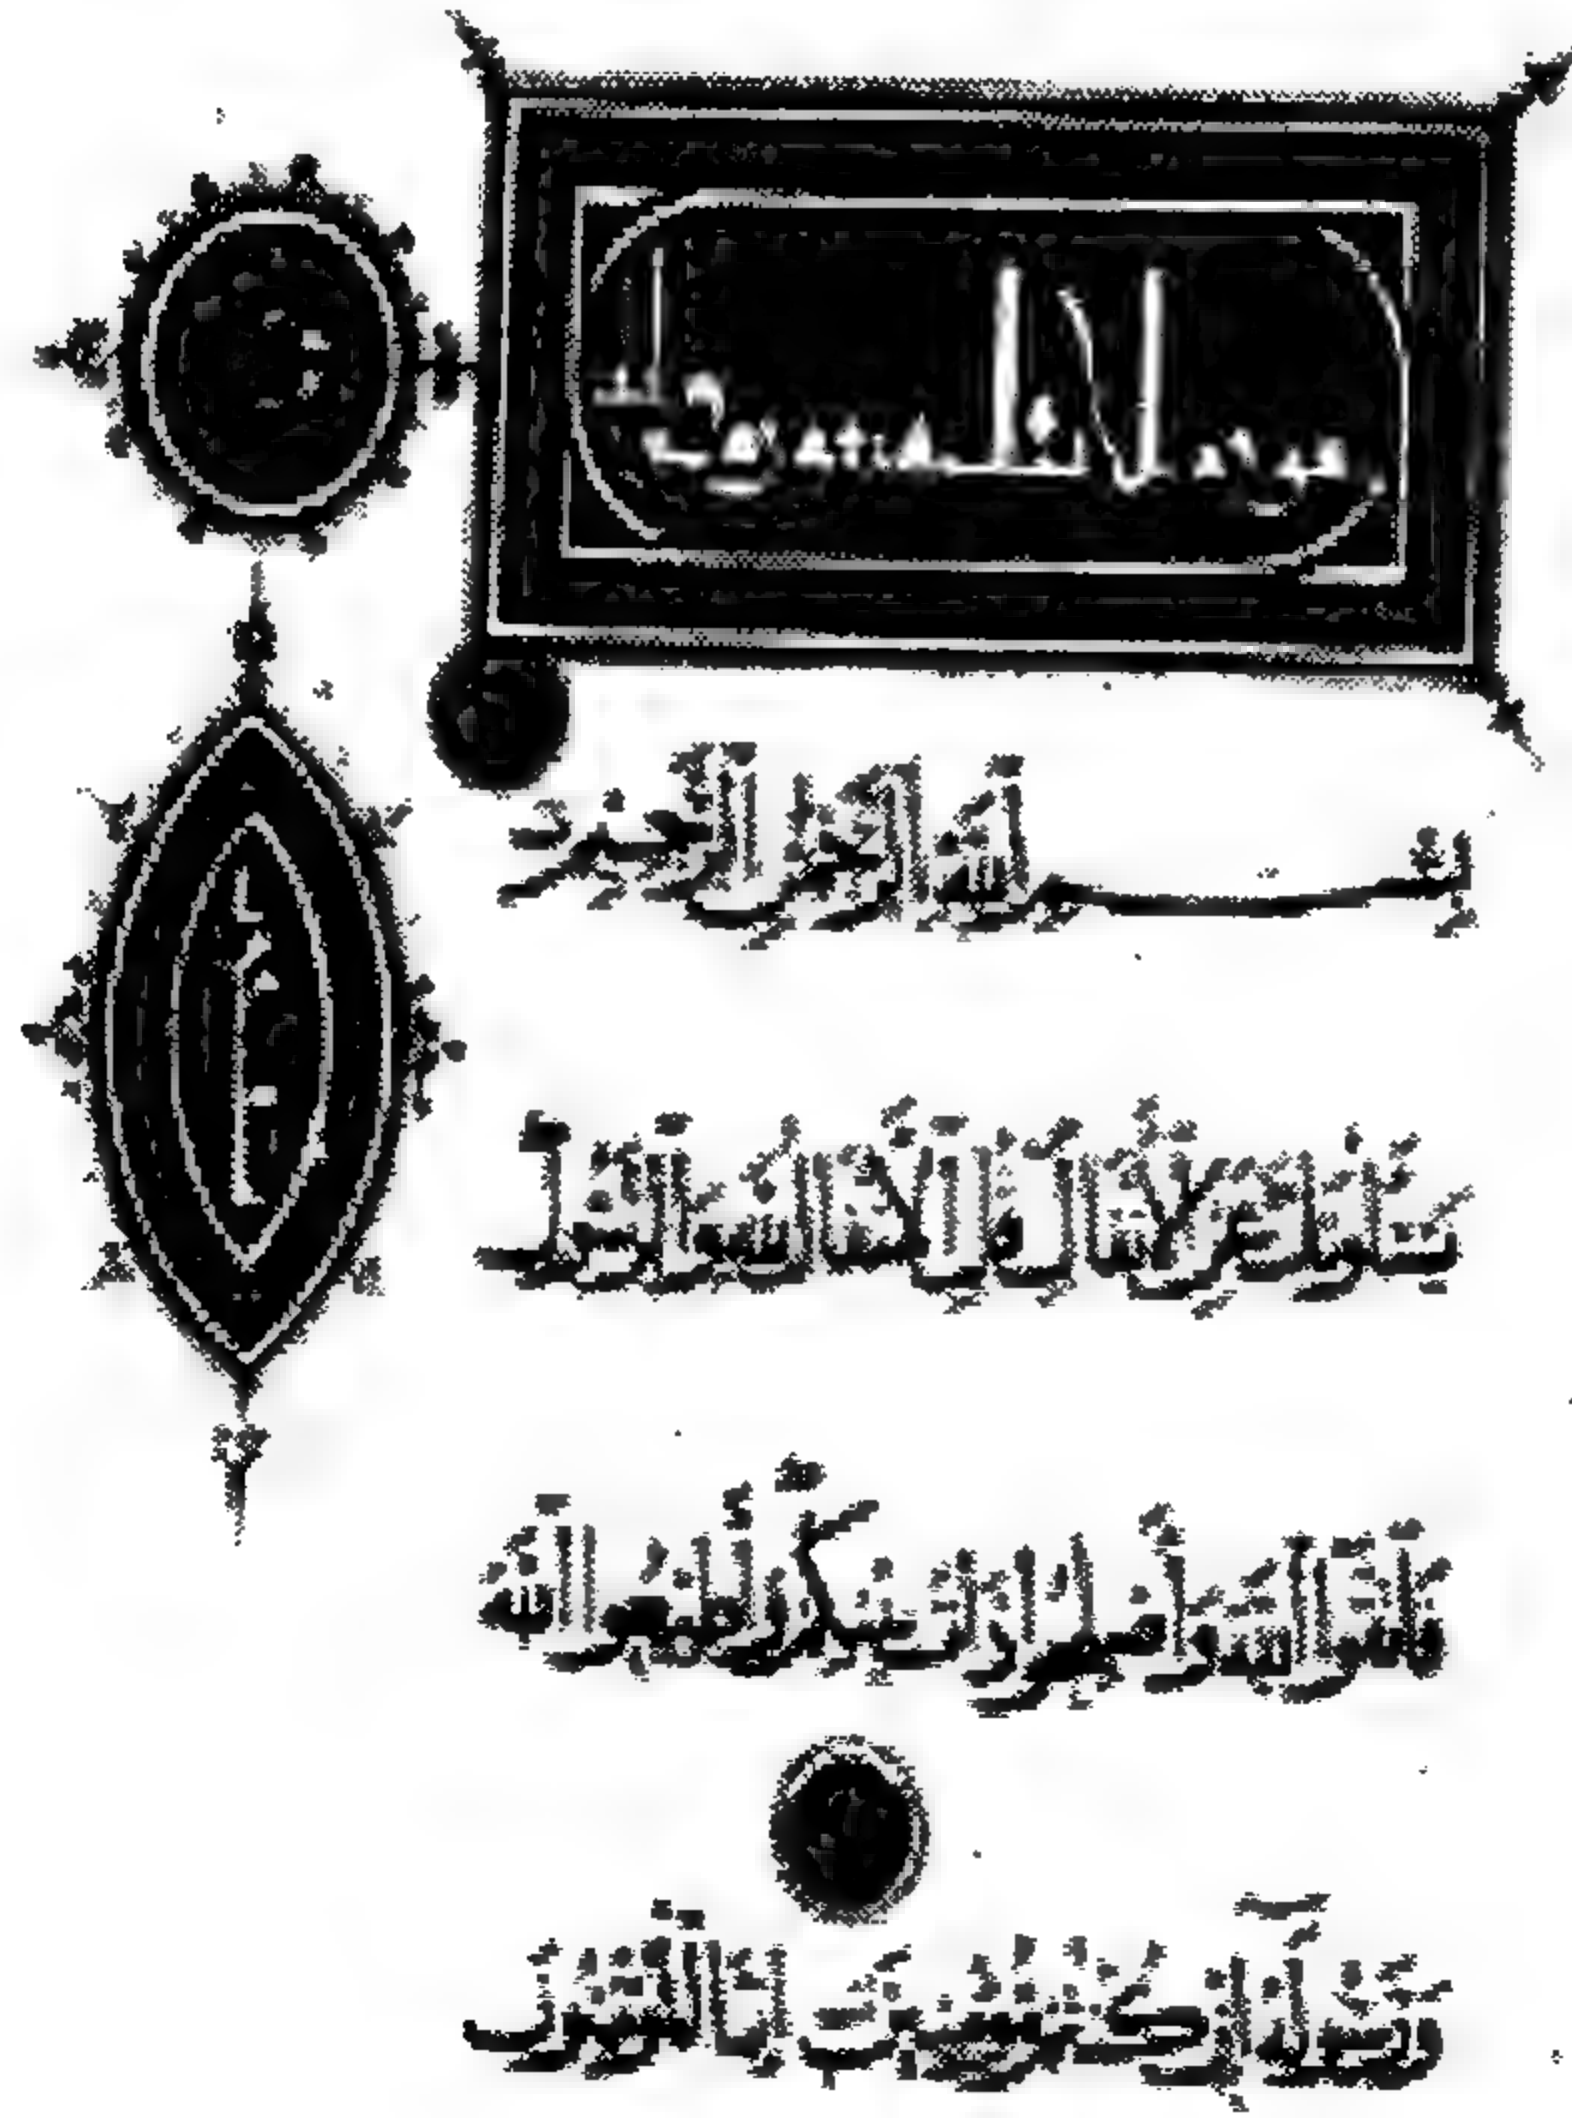 سورة الانفال
بِسْمِ اللَّهِ الرَّحْمَنِ الرَّحِيمِ
يَسْـَٔلُونَكَ عَنِ الْأَنْفَالِ قُلِ الْأَنْفَالُ لِلَّهِ وَالرَّسُولِ
فَاتَّقُوا اللَّهَ وَأَصْلِحُوا ذَاتَ بَيْنِكُمْ وَأَطِيعُوا اللَّهَ
وَرَسُولَهُ إِنْ كُنْتُمْ مُؤْمِنِينَ إِنَّمَا الْمُؤْمِنُونَ